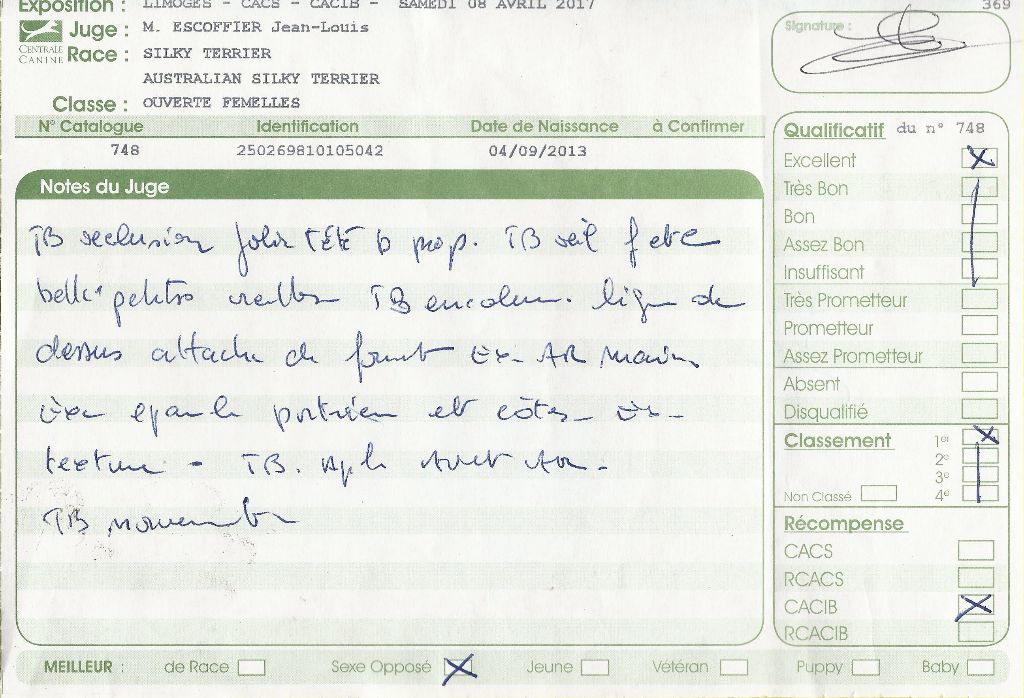 Exposition : LIMOGES - CACS - CACIB - SAMEDI 08 AVRIL 2017
369
Juge : M. ESCOFFIER Jean-Louis
CENTRALE CANINE
Race : SILKY TERRIER
AUSTRALIAN SILKY TERRIER
Classe : OUVERTE FEMELLES
Signature :
N° Catalogue Identification Date de Naissance à Confirmer
748 250269810105042 04/09/2013
Notes du Juge
TB tété b prop. TB œil
belle petites TB encolure. ligne de
dessus attache de Ex. AR main.
épaule et côtes Ex
texture - TB. Apl
TB mouvement
Qualificatif du n° 748
Excellent
Très Bon
Bon
Assez Bon
Insuffisant
Très Prometteur
Prometteur
Assez Prometteur
Absent
Disqualifié
Classement 1er
2e
3e
Non Classé 4e
Récompense
CACS
RCACS
CACIB
RCACIB
MEILLEUR : de Race Sexe Opposé Jeune Vétéran Puppy Baby